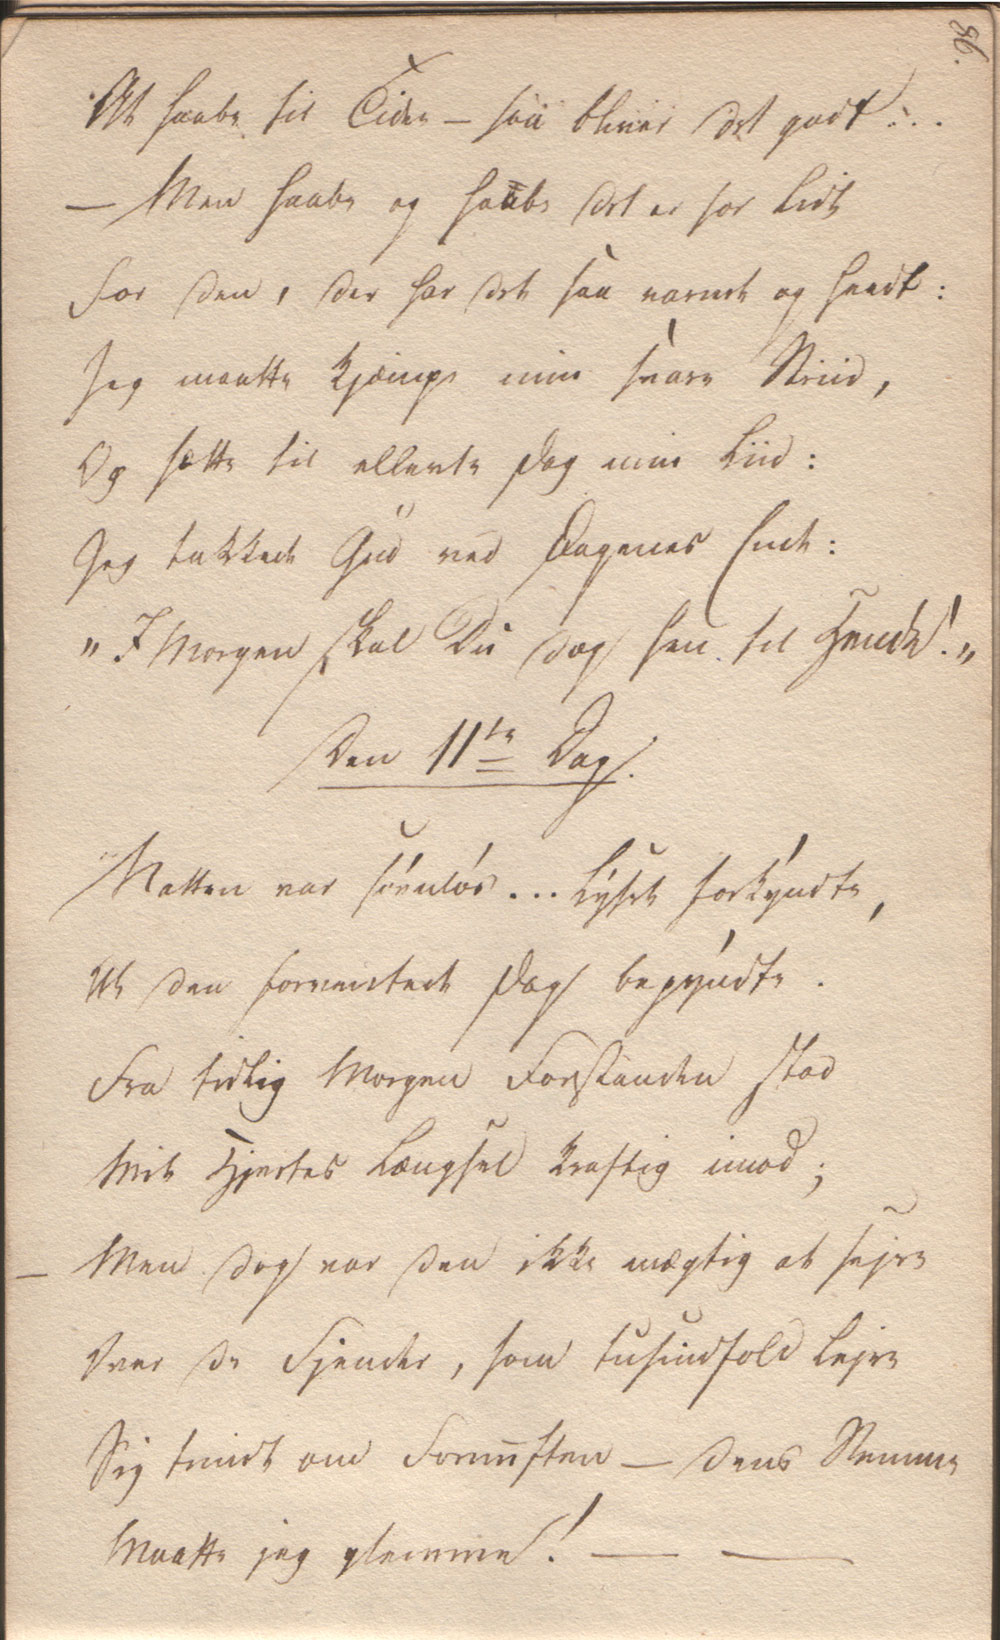 86.
At haabe til Tiden – saa bliver det godt...
– Men haabe og haabe det er for lidt
For den, der har det saa varmt og heedt:
Jeg maatte kjæmpe min svare Striid,
Og sætte til ellevte Dag min Liid:
Jeg takkede Gud ved Dagenes Ende:
"I Morgen skal Du dog hen til Hende!"
Den 11te Dag.
Natten var søvnløs... Lyset forkyndte,
At den forventede Dag begyndte.
Fra tidlig Morgen Forstanden stod
Mit Hjertes Længsel kraftig imod;
– Men dog var den ikke mægtig at sejre
Over de Fjender, som tusindfold lejre
Sig trindt om Fornuften – dens Stemme
Maatte jeg glemme! – –